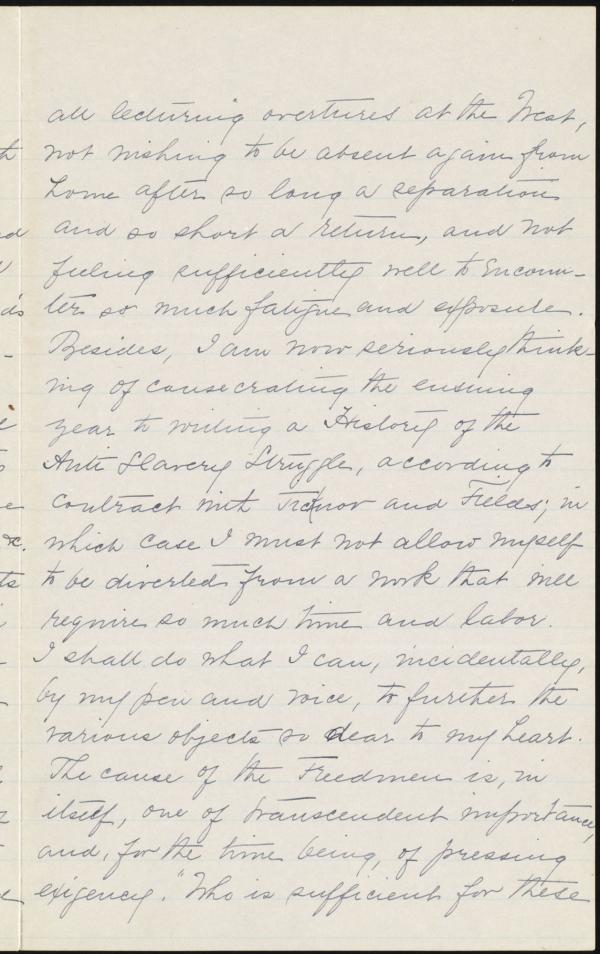 all lecturing overtures at the West,
not wishing to be absent again from
home after so long a separation
and so short a return, and not
feeling sufficiently well to encoun-
ter so much fatigue and exposure.
Besides, I am now seriously think-
ing of consecrating the ensuing
year to writing a History of the
Anti Slavery Struggle, according to
contract with Ticknor and Fields; in
which case I must not allow myself
to be diverted from a work that will
require so much time and labor.
I shall do what I can, incidentally,
by my pen and voice, to further the
various objects so dear to my heart.
The cause of the Freedmen is, in
itself, one of transcendent importance,
and, for the time being, of pressing
exigency. "Who is sufficient for these